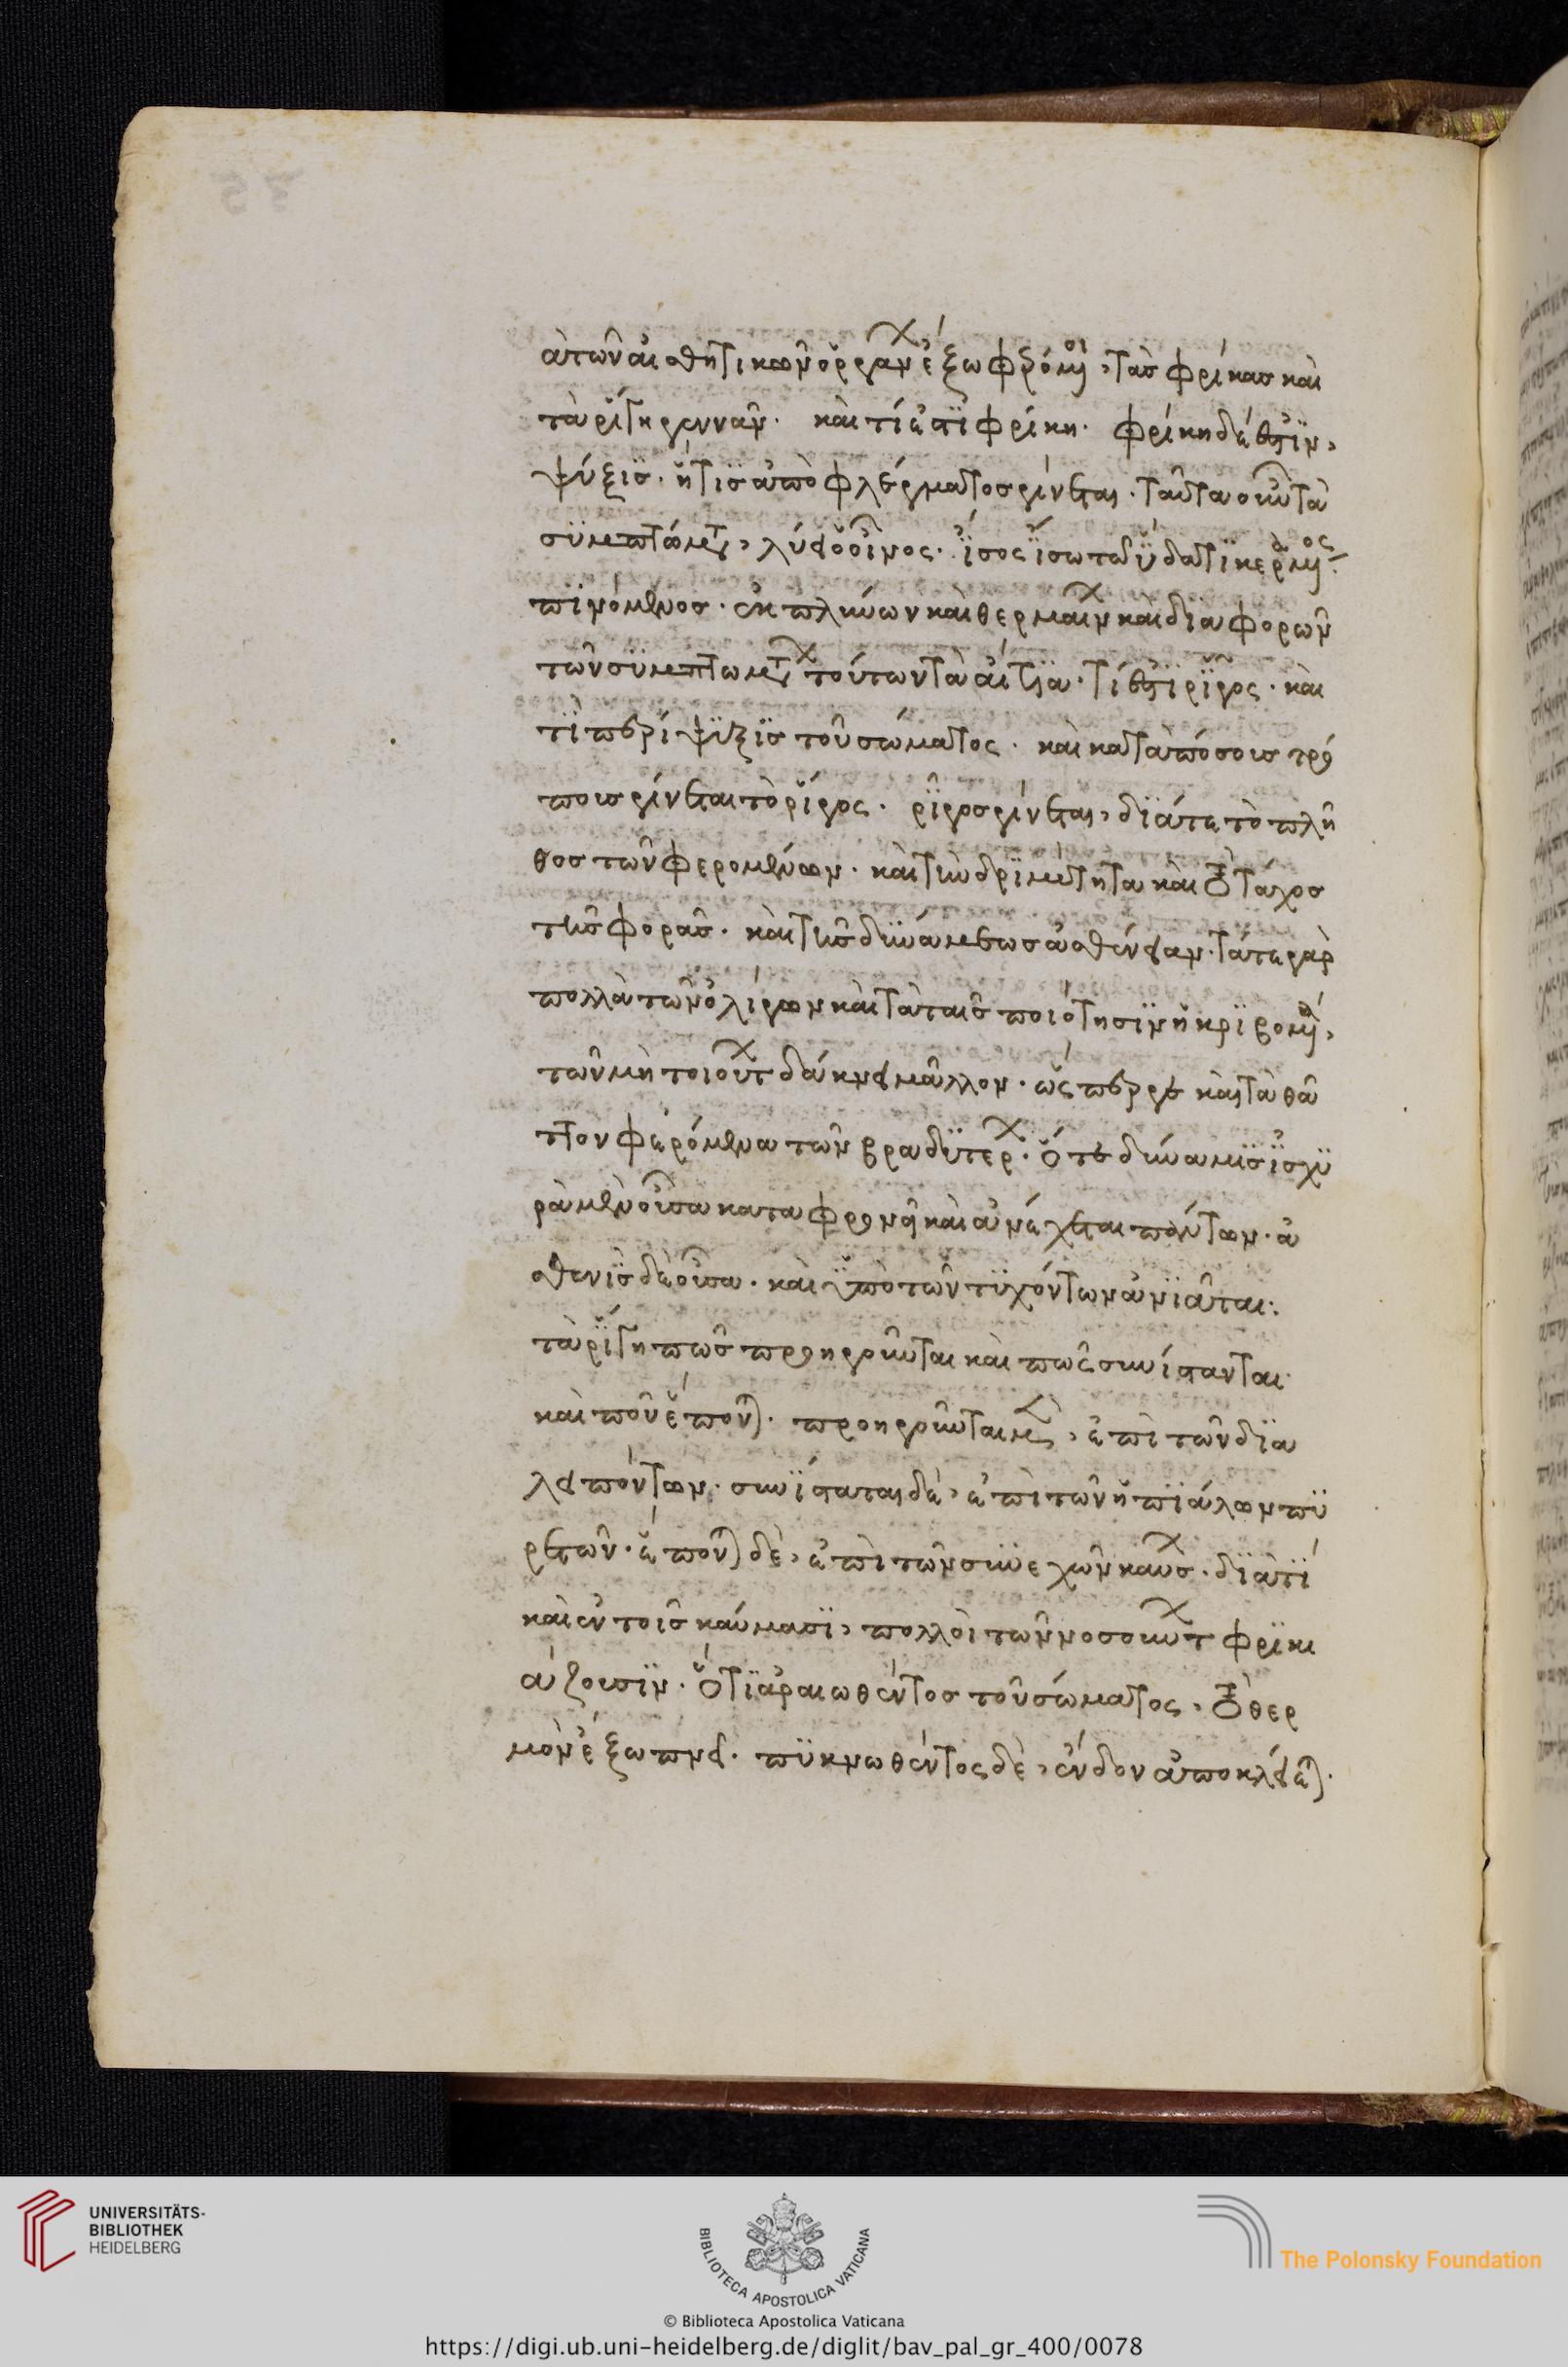 ὰ τῶν αἰσθητικῶν ὀργάν ἔξω φερόμ, τὰσ φρίκασ καὶ
τὰ ρίγη γεννᾶν. καὶ τί ἐστὶ φρίκη. φρίκη δέ ἐστὶν,
ψύξισ. ἥτισ ἀπὸ φλέγματοσ γίνεται. ταῦτα οὖν τὰ
συμπτώματ, λύει ὁ οἶνος. ἴσος ἴσω τῶ ὕδατι κερ
πινόμενοσ. ἐκπλύνων καὶ θερμαίν καὶ διαφορῶν
τῶν συμπτωμάτ τούτων τὰ αἴτια. τί ἐστὶ ρίγος. καὶ
τί περίψυξισ τοῦ σώματος. καὶ κατὰ πόσουσ τρό
πουσ γίνεται τὸ ρίγος. ρίγοσ γίνεται, διά τε τὸ πλῆ
θοσ τῶν φερομένων. καὶ τὴν δριμύτητα καὶ τὸ τάχοσ
τῆσ φορᾶσ. καὶ τῆσ δυνάμεωσ ἀσθένειαν. τά τε γὰρ
πολλὰ τῶν ὀλίγων καὶ τὰ ταῖσ ποιότησιν ἠκριβομ,
τῶν μὴ τοιούτ δάκνει μᾶλλον. ὥσπερ γε καὶ τὰ θᾶ
ττον φερόμενα τῶν βραδυτέρ. ὅτε δύναμισ ἰσχυ
ρὰ μὲν οὖσα καταφρονεῖ καὶ ἀνέχεται πάντων. ἀ
σθενὴσ δὲ οὖσα. καὶ ὑπὸ τῶν τυχόντων ἀνιᾶται:
τὰ ρίγη πῶσ προηγοῦνται καὶ πῶς συνίστανται.
καὶ ποῦ ἕπονται. προηγοῦνται μὲν, ἐπὶ τῶν δια
λειπόντων. συνίσταται δὲ, ἐπὶ τῶν ἠπιάλων πυ
ρετῶν. ἕπονται δὲ, ἐπὶ τῶν συνεχῶν καύσ. διὰ τί
καὶ ἐν τοῖσ καύμασι, πολλοὶ τῶν νοσούντ φρικι
άζουσιν. ὅτι ἀραιωθέντοσ τοῦ σώματος, τὸ θερ
μὸν ἔξω πνεῖ. πυκνωθέντος δὲ, ἔνδον ἀποκλείεται.
UNIVERSITÄTS-
BIBLIOTHEK
HEIDELBERG
BIBLIOTECA APOSTOLICA VATICANA
© Biblioteca Apostolica Vaticana
The Polonsky Foundation
https://digi.ub.uni-heidelberg.de/diglit/bav_pal_gr_400/0078